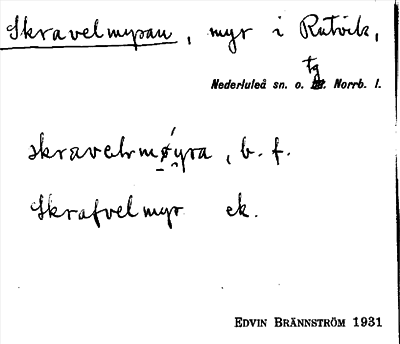 Skravelmyran, myr i Rutvik,
tg
Nederluleå sn. o. Norrb. l.
skravelrmø̱yra, b. f.
Skrafvelmyr ek.
EDVIN BRÄNNSTRÖM 1931